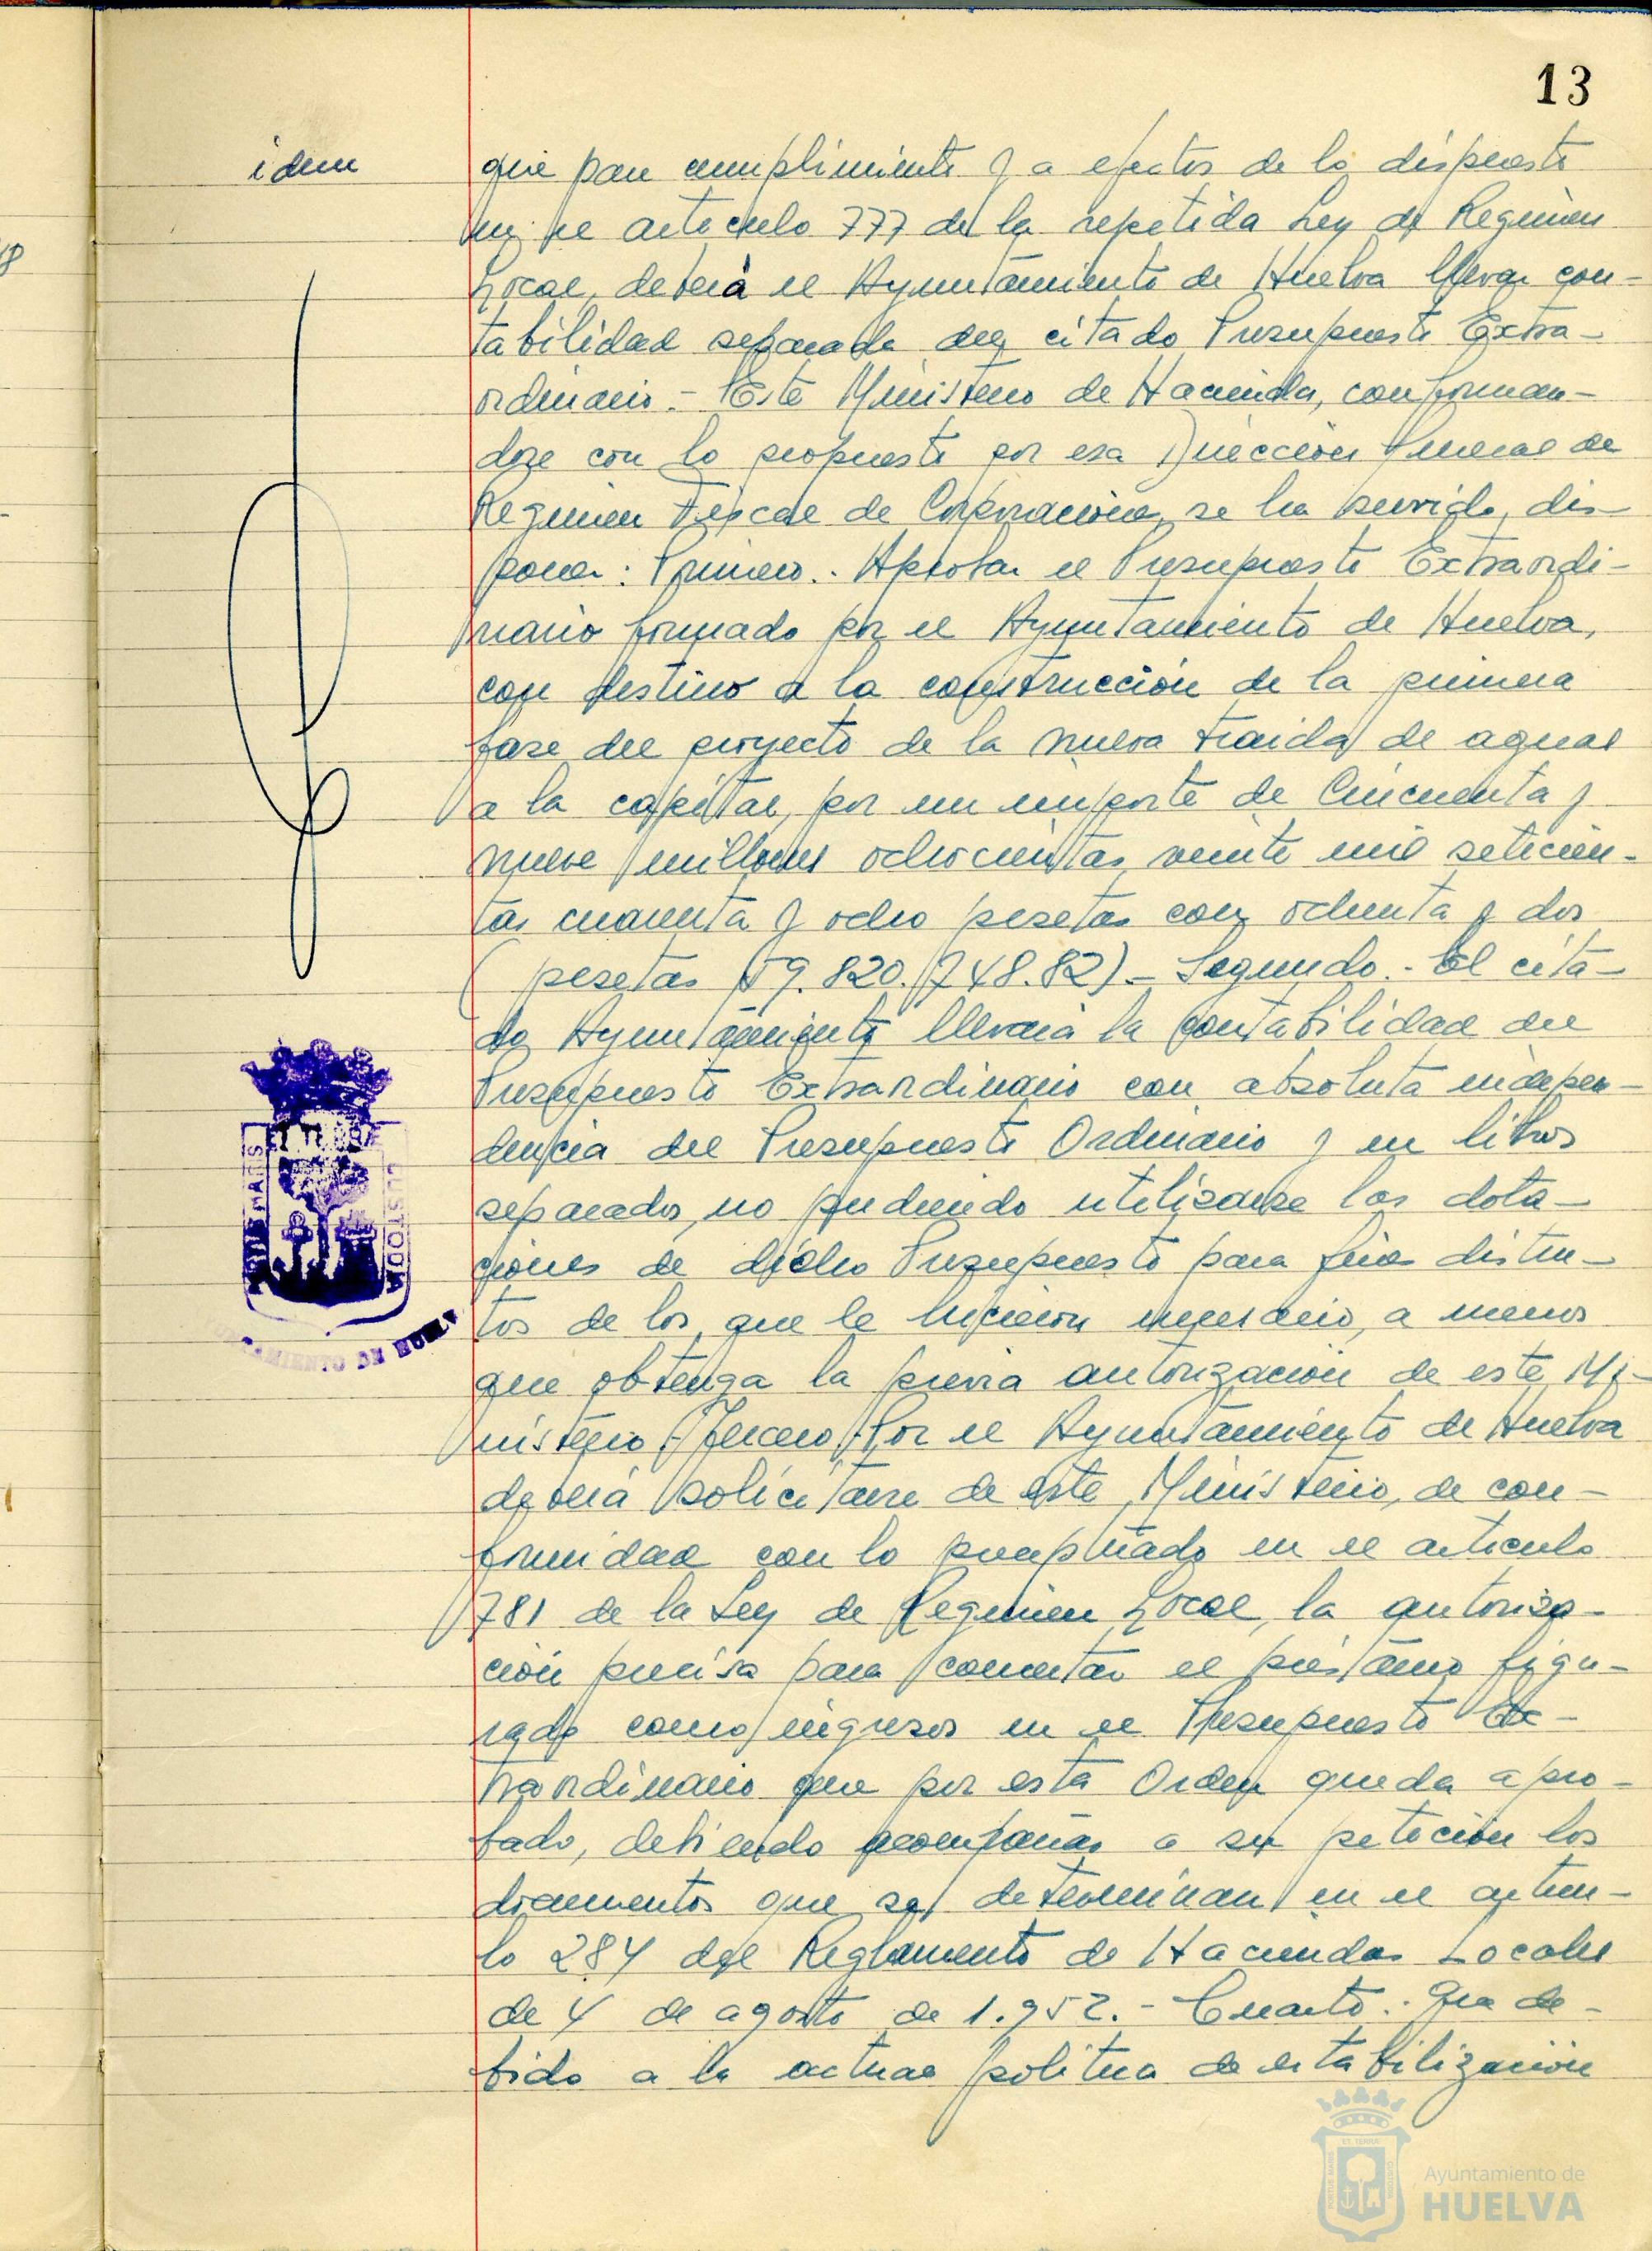 13
idem
que para cumplimiento y a efectos de lo dispuesto
en el artículo 777 de la repetida Ley de Regimen
Local, deberá el Ayuntamiento de Huelva llevar con-
tabilidad separada del citado Presupuesto Extra-
ordinario.- Este Ministerio de Hacienda, conforman-
dose con lo propuesto por esa Dirección General de
Regimen Fiscal de Corporaciones, se ha servido dis-
poner: Primero.- Aprobar el Presupuesto Extraordi-
nario formado por el Ayuntamiento de Huelva,
con destino a la construcción de la primera
fase del proyecto de la nueva traida de aguas
a la capital, por un importe de Cincuenta y
nueve millones ochocientas veinte mil setecien-
tas cuarenta y ocho pesetas con ochenta y dos
(pesetas 59.820.748.82)- Segundo.- El cita-
do Ayuntamiento llevará la contabilidad del
Presupuesto Extraordinario con absoluta indepen-
dencia del Presupuesto Ordinario y en libros
separados, no pudiendo utilizarse las dota-
ciones de dicho Presupuesto para fines distin-
tos de los que le hicieron necesario, a menos
que obtenga la previa autorización de este Mi-
nisterio.- Tercero.- Por el Ayuntamiento de Huelva
deberá solicitarse de este Ministerio, de con-
formidad con lo preceptuado en el artículo
781 de la Ley de Regimen Local, la autoriza-
ción precisa para concertar el préstamo figu-
rado como ingresos en el Presupuesto Ex-
traordinario que por esta Orden queda apro-
bado, debiendo acompañar a su petición los
documentos que se determinan en el artícu-
lo 284 del Reglamento de Haciendas Locales
de 4 de agosto de 1.952.- Cuarto.- Que de-
bido a la actual política de estabilización
PORTUS MARIS
ET TERRAE
CUSTODIA
AYUNTAMIENTO DE HUELVA
Ayuntamiento de
HUELVA